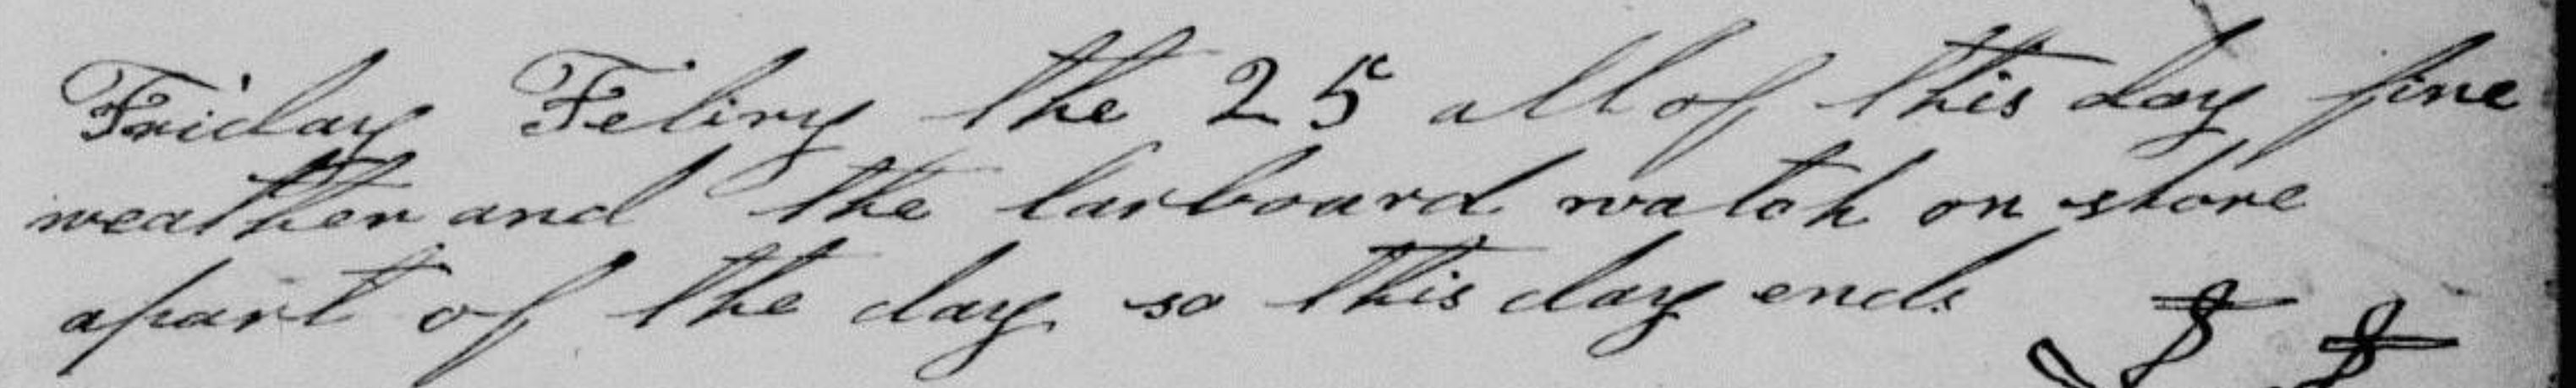 Friday Febury the 25 all of this day fine
weather and the larboard watch on shore
apart of the day so this day ends